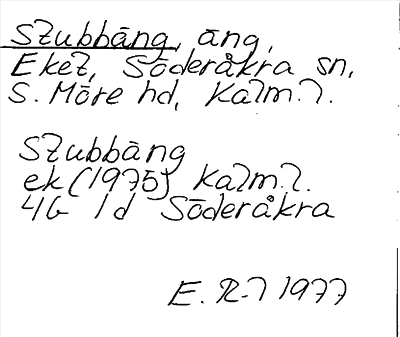 Stubbäng, äng,
Eket, Söderåkra sn,
S. Möre hd, Kalm. l.
Stubbäng
ek (1975) Kalm. l.
4G 1d Söderåkra
E. R-l 1977